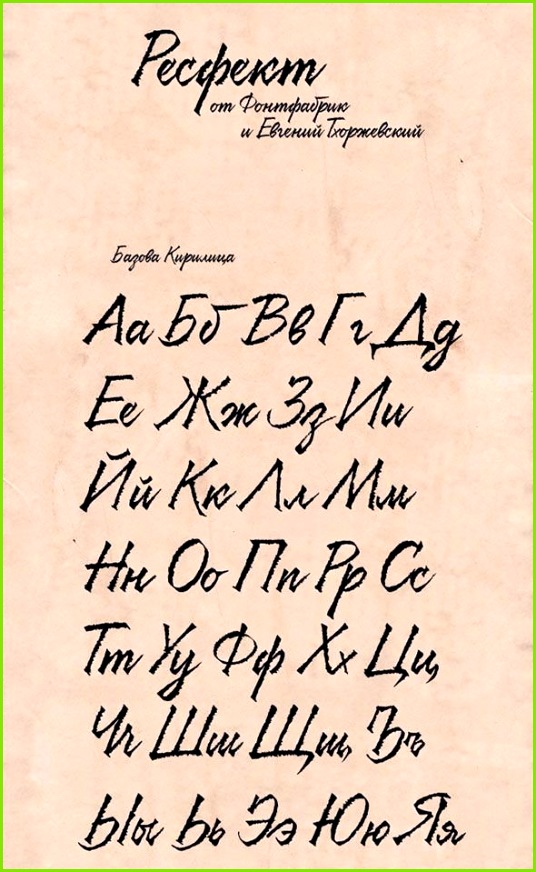 Ресфект
от Фонтфабрик
и Евгений Тхоржевский
Базова Кирилица
Аа Бб Вв Гг Дд
Ее Жж Зз Ии
Йй Кк Лл Мм
Нн Оо Пп Рр Сс
Тт Уу Фф Хх Цц
Чч Шш Щщ Ъъ
Ыы Ьь Ээ Юю Яя